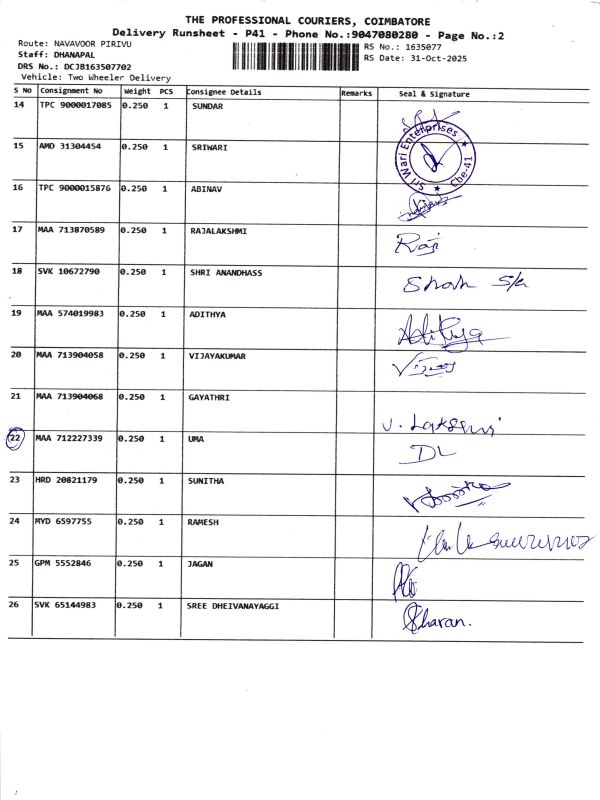 THE PROFESSIONAL COURIERS, COIMBATORE
Delivery Runsheet - P41 - Phone No.:9047080280 - Page No.:2
Route: NAVAVOOR PIRIVU
RS No.: 1635077
Staff: DHANAPAL
RS Date: 31-Oct-2025
DRS No.: DCJB163507702
Vehicle: Two Wheeler Delivery
S No Consignment No Weight PCS Consignee Details Remarks Seal & Signature
14 TPC 9000017085 0.250 1 SUNDAR
15 AMD 31304454 0.250 1 SRIWARI
Sri Wari Enterprises ★ Cbe-41 ★
16 TPC 9000015876 0.250 1 ABINAV
17 MAA 713870589 0.250 1 RAJALAKSHMI Raji
18 SVK 10672790 0.250 1 SHRI ANANDHASS Shah S/a
19 MAA 574019983 0.250 1 ADITHYA Adithya
20 MAA 713904058 0.250 1 VIJAYAKUMAR
21 MAA 713904068 0.250 1 GAYATHRI V. Lakshmi
22 MAA 712227339 0.250 1 UMA DL
23 HRD 20821179 0.250 1 SUNITHA
24 MYD 6597755 0.250 1 RAMESH
25 GPM 5552846 0.250 1 JAGAN
26 SVK 65144983 0.250 1 SREE DHEIVANAYAGGI Sharan.